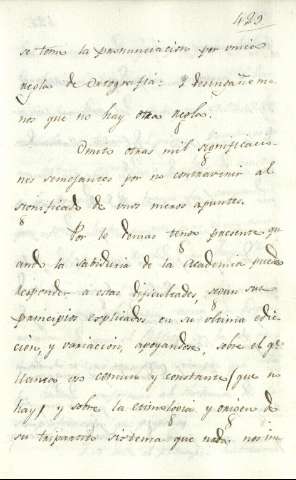 429
se tome la pronunciacion por unica
regla de Ortografía: y
nos que no hay otra regla.
Omito otras mil significacio
nes semejantes por no contravenir al
significado de unos menos apuntes.
Por lo demas tengo presente qu
anto la sabiduria de la Academia pueda
responder a estas dificultades, segun sus
principios esplicados en su ultima edic
cion, y variacion, apoyandose, sobre el qe
llaman uso comun y constante (que no
hay) y sobre la etimologia y origen de
su tripartito sistema que nada nos im